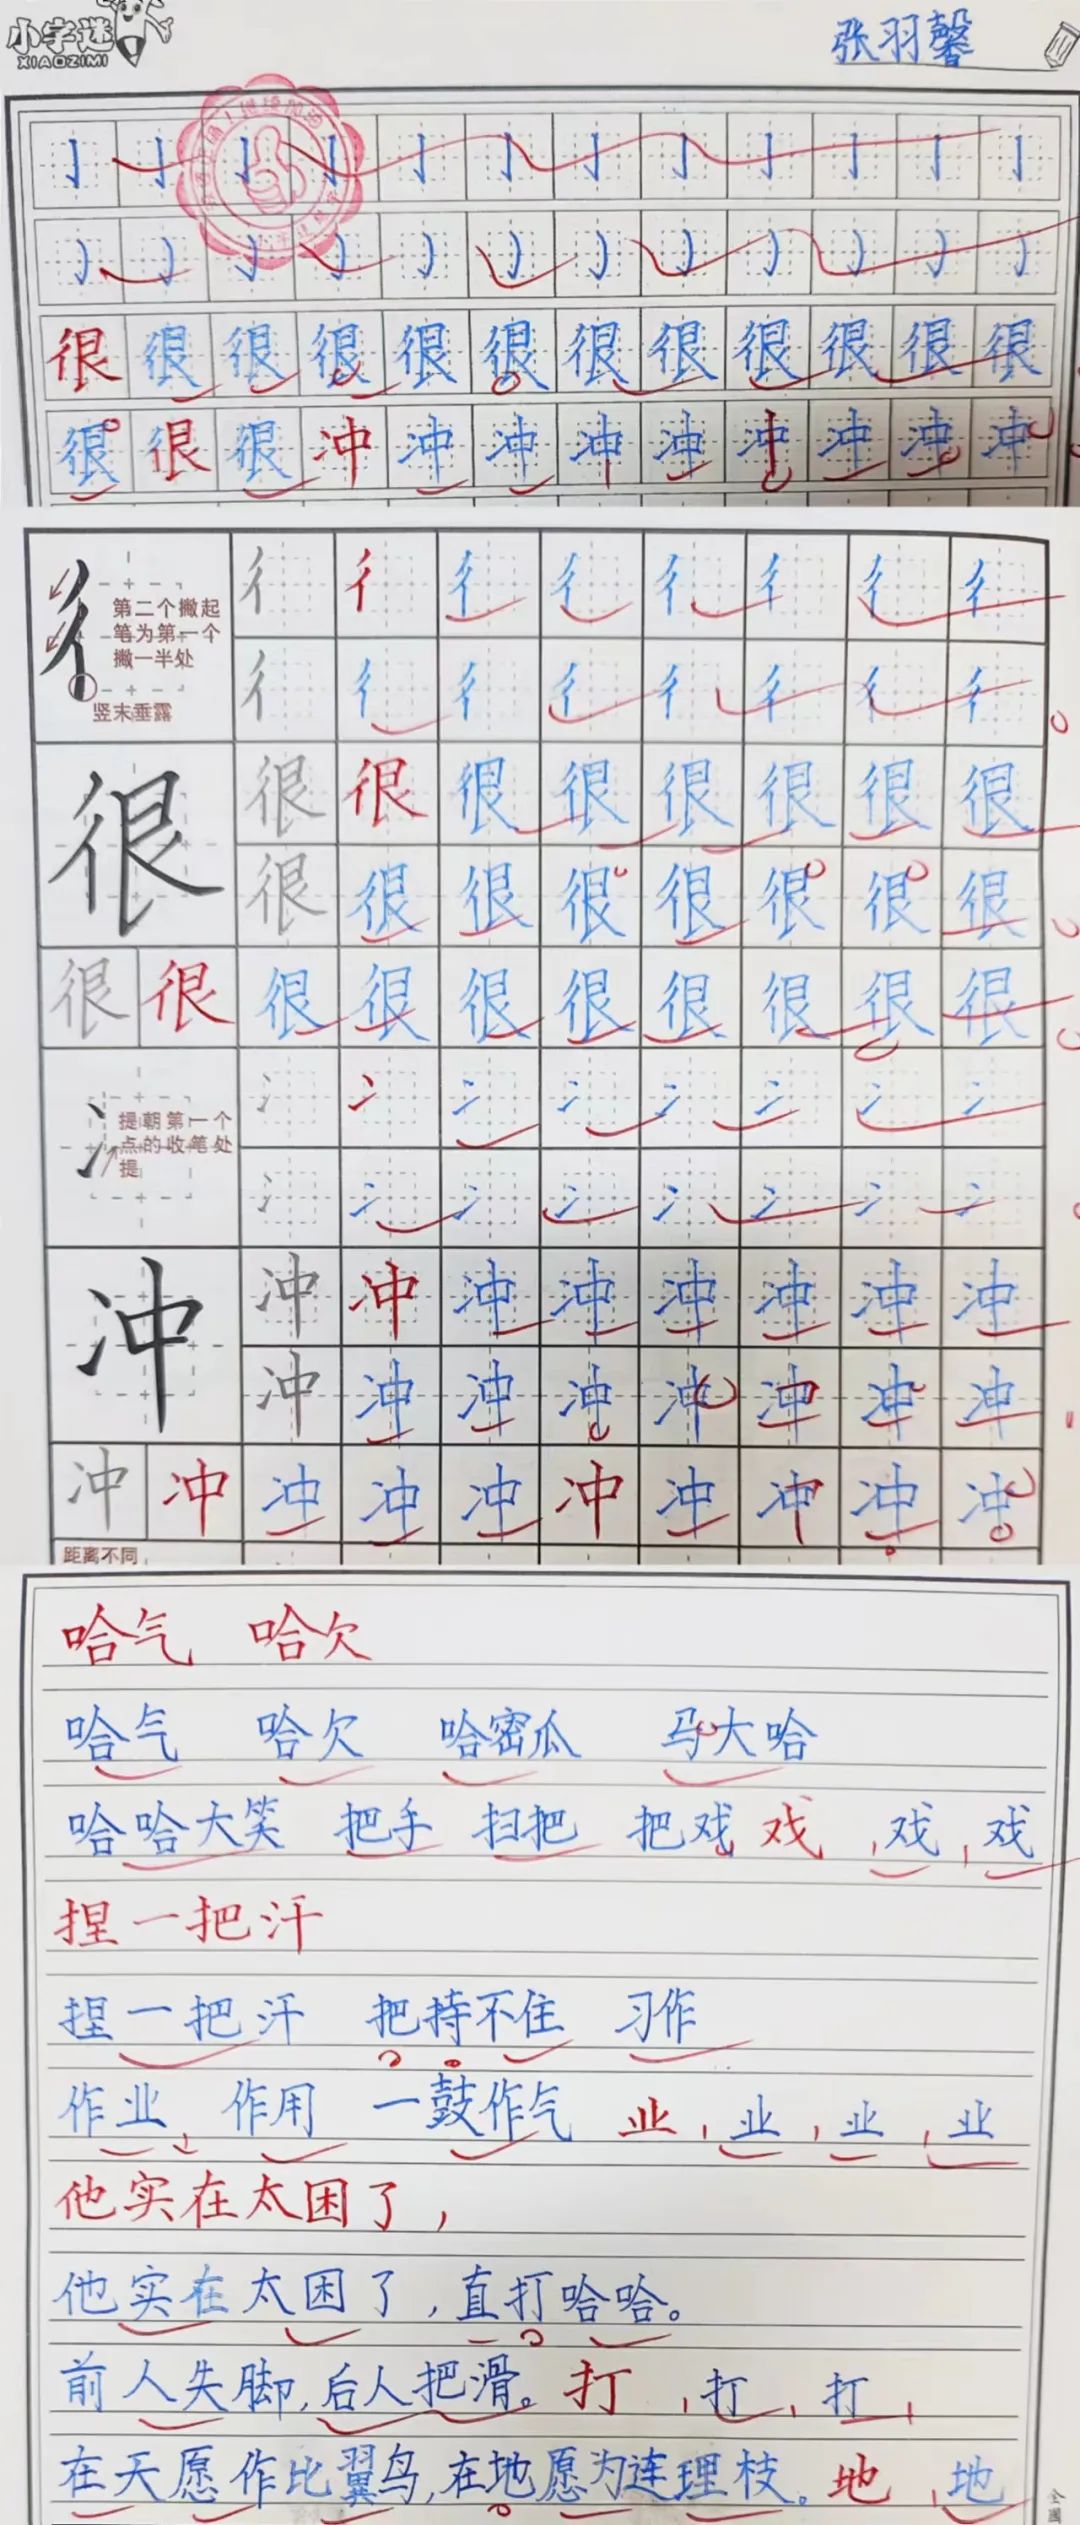 小字迷
XIAOZIMI
张羽馨
亅亅亅亅亅亅亅亅亅亅亅亅
亅亅亅亅亅亅亅亅亅亅亅亅
很很很很很很很很很很很很
很很很冲冲冲冲冲冲冲冲冲
彳彳彳彳彳彳彳彳彳
第二个撇起
笔为第一个
撇一半处
彳彳彳彳彳彳彳彳
竖末垂露
很很很很很很很很很
很很很很很很很很
很很很很很很很很很很
冫冫冫冫冫冫冫冫冫
提朝第一个
点的收笔处
提
冫冫冫冫冫冫冫冫
冲冲冲冲冲冲冲冲冲
冲冲冲冲冲冲冲冲
冲冲冲冲冲冲冲冲冲冲
距离不同
哈气 哈欠
哈气 哈欠 哈密瓜 马大哈
哈哈大笑 把手 扫把 把戏 戏 戏 戏
捏一把汗
捏一把汗 把持不住 习作
作业 作用 一鼓作气 业 业 业 业
他实在太困了，
他实在太困了，直打哈哈。
前人失脚，后人把滑。 打 打 打
在天愿作比翼鸟，在地愿为连理枝。 地 地
全国